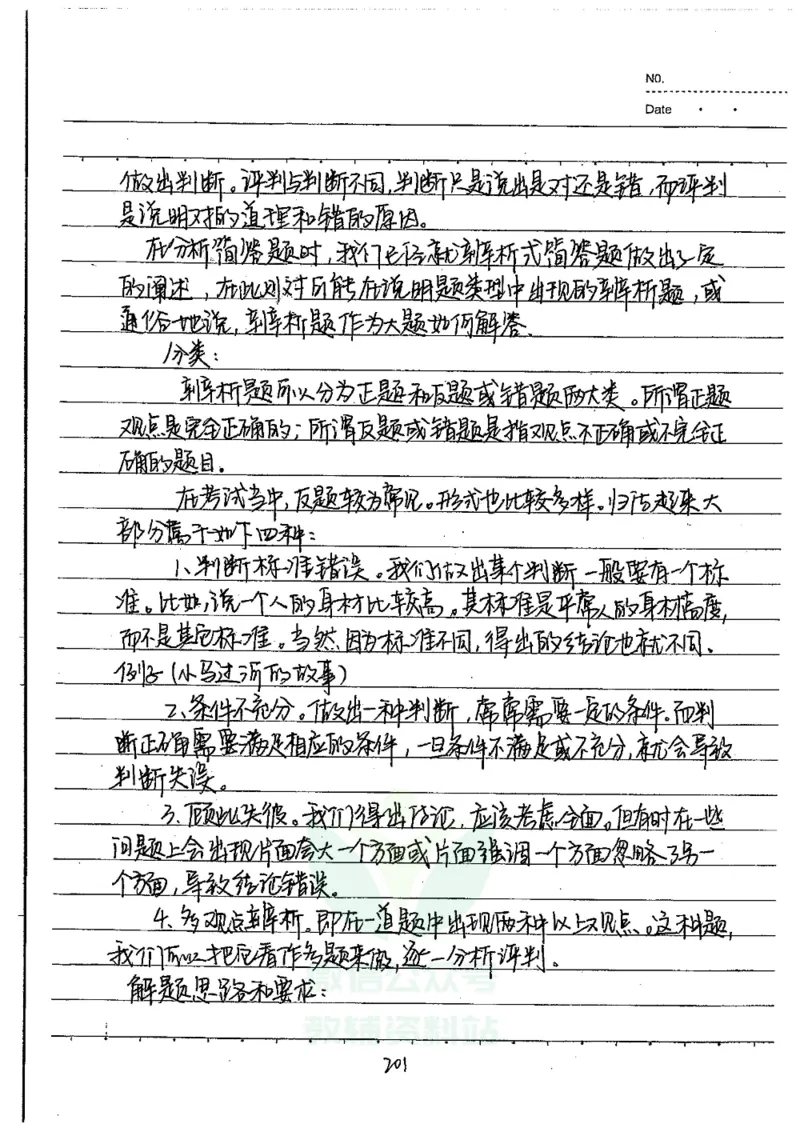 NO.
Date
做出判断。评判与判断不同,判断只是说出是对还是错,而评判
是说明对的道理和错的原因。
在分析简答题时,我们已经就辨析式简答题做出了一定
的阐述,在此则对可能在说明题类型中出现的辨析题,或
通俗地说,辨析题作为大题如何解答.
1分类:
辨析题可以分为正题和反题或错题两大类。所谓正题
观点是完全正确的;所谓反题或错题是指观点不正确或不完全正
确的题目.
在考试当中,反题较为常见。形式也比较多样。归结起来大
部分属于如下四种:
1、判断标准错误。我们做出某个判断一般要有一个标
准。比如,说一个人的身材比较高。其标准是平常人的身材高度,
而不是其它标准。当然因为标准不同,得出的结论也就不同、
例好(小马过河的故事)
2、条件不充分。做出一种判断,常常需要一定的条件。而判
断正确需要满足相应的条件,一旦条件不满足或不充分,就会导致
判断失误。
3.顾此失彼。我们得出结论,应该考虑全面。但有时在一些
问题上会出现片面夸大一个方面或片面强调一个方面忽略了另一
个方面,导致结论错误。
4.多观点辨析。即在一道题中出现两种以上观点。这种题,
我们可以把它看作多题来做,逐一分析评判。
解题思路和要求:
微信公众号
教辅资料站
201